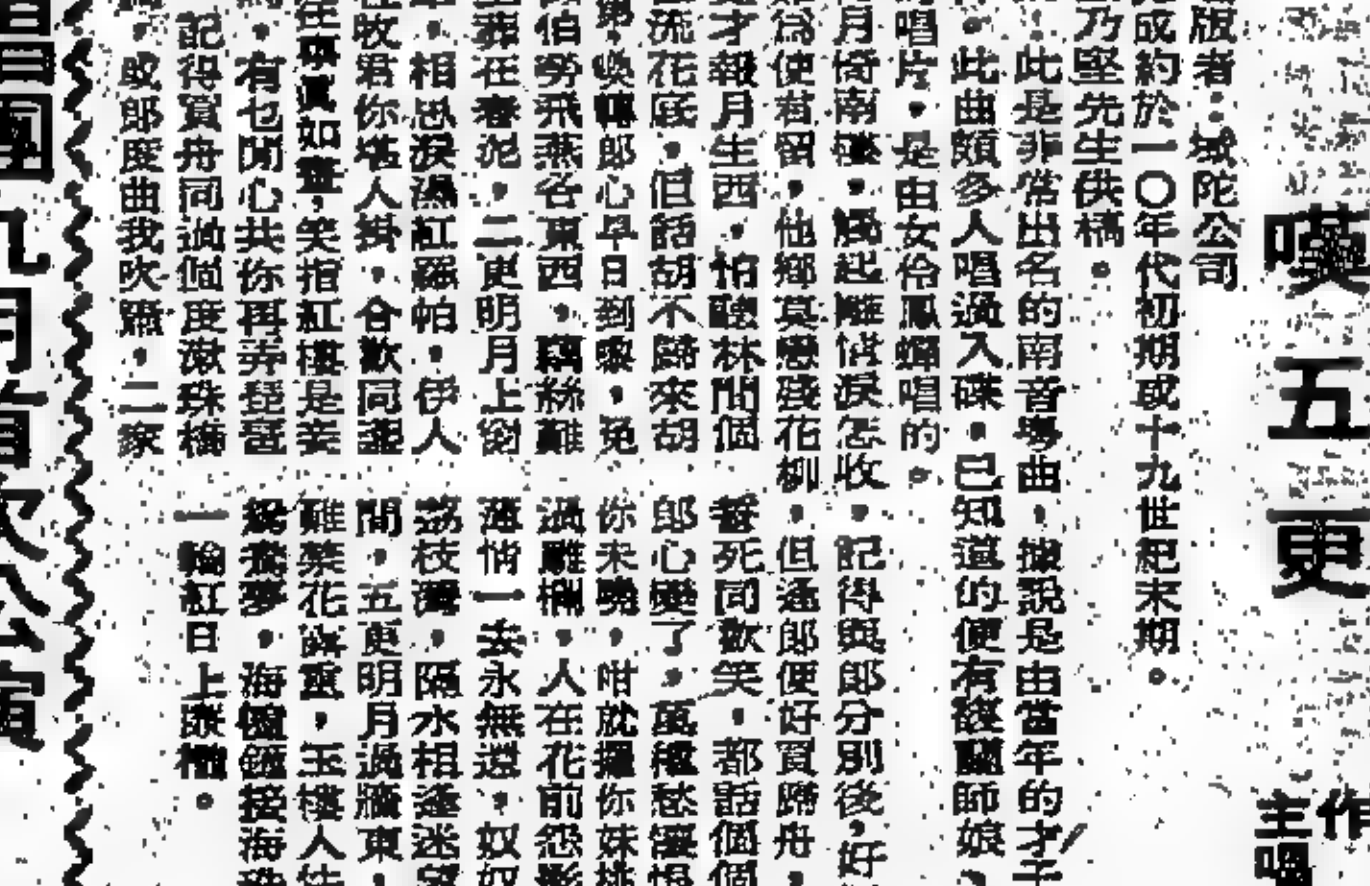 嘆五更
作
主唱
版者：域陀公司
成約於一〇年代初期或十九世紀末期。
乃堅先生供稿。
，此是非常出名的南音粵曲，據說是由當年的才子
，此曲頗多人唱過入碟，已知道的便有蘭師娘、
唱片，是由女伶鳳蟬唱的。
月倚南樓，觸起離情淚怎收，記得與郎分別後，好
為使君留，他鄉莫戀殘花柳，但逢郎便好買歸舟，
才報月生西，怕聽林間個
流花底，但話胡不歸來胡
弟，喚轉郎心早日到黎，免
伯勞飛燕各東西，藕絲難
葬在春泥，二更明月上窗
，相思淚濕紅羅帕，伊人
牧君你堪人掛，合歡同盞
在真如畫，笑指紅樓是妾
，有乜閒心共你再弄琵琶
記得買舟同過個度漱珠橋
，或郎度曲我吹簫，二家
誓死同歡笑，都話個個
郎心變了，萬種愁懷恨
你未曉，咁就攞你妹桃
過雕欄，人在花前怨影
薄情一去永無還，奴奴
荔枝灣，隔水相逢迷望
間，五更明月過牆東，
難禁花露重，玉樓人怯
鴛鴦夢，海幢鐘接海珠
一輪紅日上簾櫳。
唱團九月首次公演